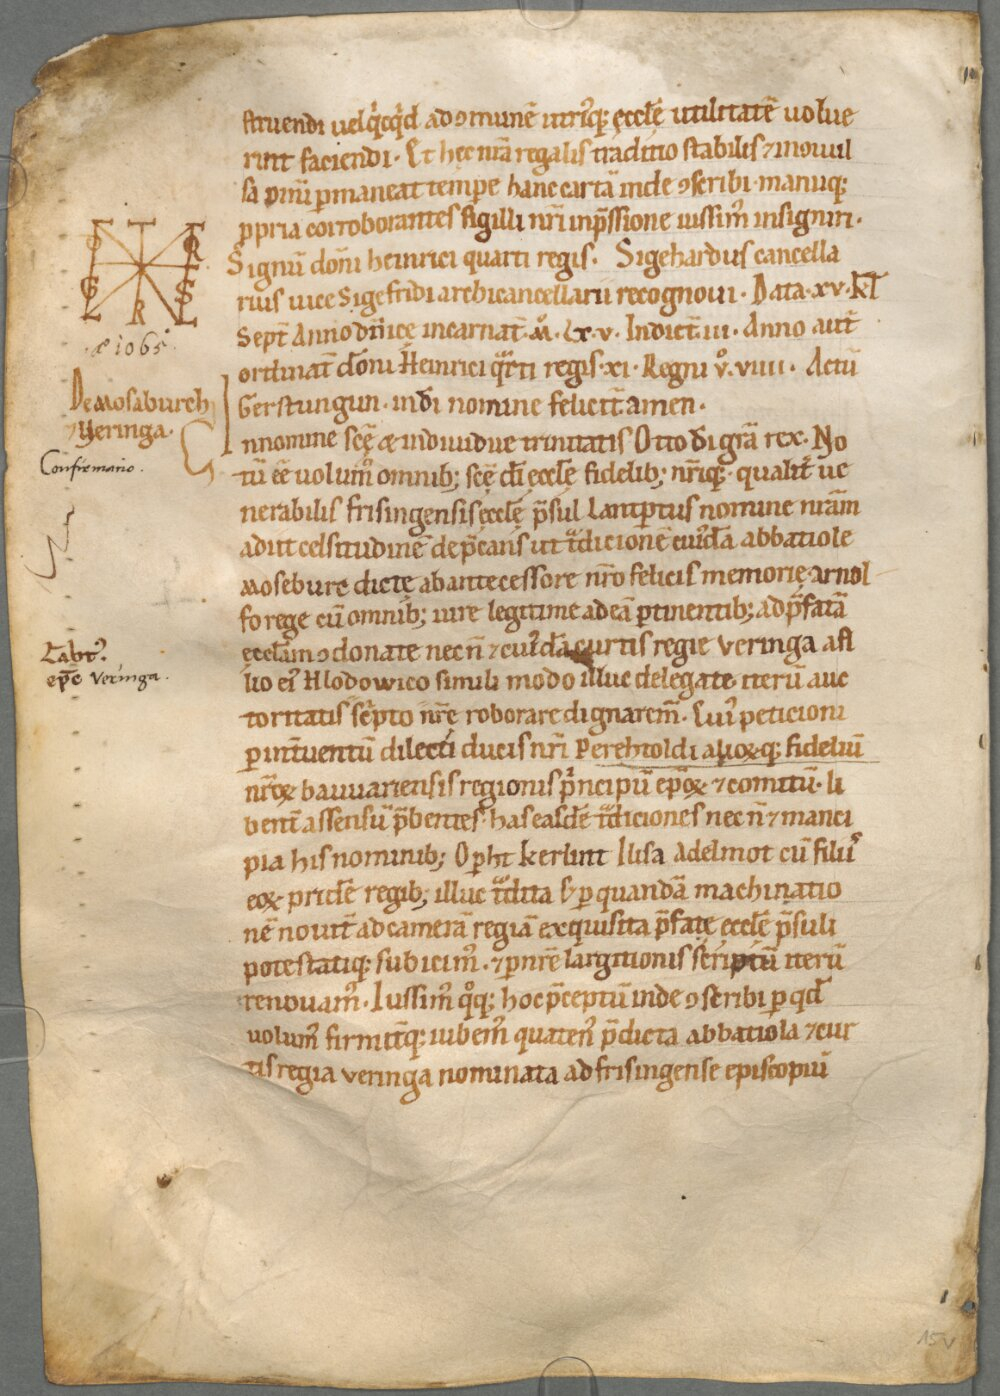 struendi uel q̍cq̍d ad ꝯmunē utriq; ęccłę utilitatē uolue
rint faciendi · Et hęc nr̄a regalis traditio stabilis ⁊ inouul
sa om̄i ꝑmaneat tempe hanc cartā inde ꝯscribi · manuq;
ꝓpria corroborantes sigilli nr̄i inp̄ssione iussim᷒ insigniri ·
Signū dom̄i heinrici quarti regis · Sigehardus cancella
rius uice Sigefridi archicancellarii recognoui · Data · xv · kł
Sept̄ Anno dn̄icę incarnat̄ · M̊ · Lx · v · Indict̄ · iii · Anno aut̄
ordinat̄ dom̄i Heinrici q̈rti regis · xi · Regni v̊ · viiii · Actū
Gerstungun · in dī nomine felicit̄ amen ·
ę 1065 ·
De mosaburch
⁊ Veringa ·
Confirmatio ·
In nomine scę̄ & indiuidue trinitatis Otto dī grā rex · No
tū eē uolum᷒ omnib; scę̄ dī ęccłę fidelib; nr̄isq; · qualit̄ ue
nerabilis frisingensis ęccłę p̄sul Lantptus nomine nr̄am
adiit celsitudinē dep̄cans ut t̄dicionē cui᷒dā abbatiole
moseburc dictę ab antecessore nr̄o felicis memorię arnol
fo rege cū omnib; iure legitime ad eā ꝑtinentib; ad p̄fatā
ęccłam ꝯdonate nec ñ ⁊ cui᷒dā curtis regie veringa a fi
lio ei᷒ Hlodowico simili modo illuc delegate iterū auc
toritatis sc̍pto nr̄ę roborare dignarem᷒ · Cui᷒ peticioni
ꝑ int̄uentū dilecti ducis nr̄i Perehtoldi alioꝝq; fidelium
nr̄oꝝ bauuariensis regionis p̍ncipū ep̄oꝝ ⁊ comitū · li
bent̄ assensū p̄bentes · has easdē t̄diciones nec ñ ⁊ manci
pia his nominib; Opht kerlint Ilisa Adelmot cū filiis
eoꝝ pridē regib; illuc t̄dita s; ꝑ quandā machinatio
nē nouit̄ ad camerā regiā exquisita p̄fatę ęccłę p̄suli
potestatiq; subicim᷒ · ⁊ ꝑ nr̄ę largitionis scriptū iterū
renouam᷒ · Iussim᷒ q̊q; hoc p̄ceptū inde ꝯscribi ꝑ qđ
uolum᷒ firmit̄q; iubem᷒ quaten᷒ p̄dicta abbatiola ⁊ cur
tis regia veringa nominata ad frisingense episcopiū
ep̄c Veringa ·
15v